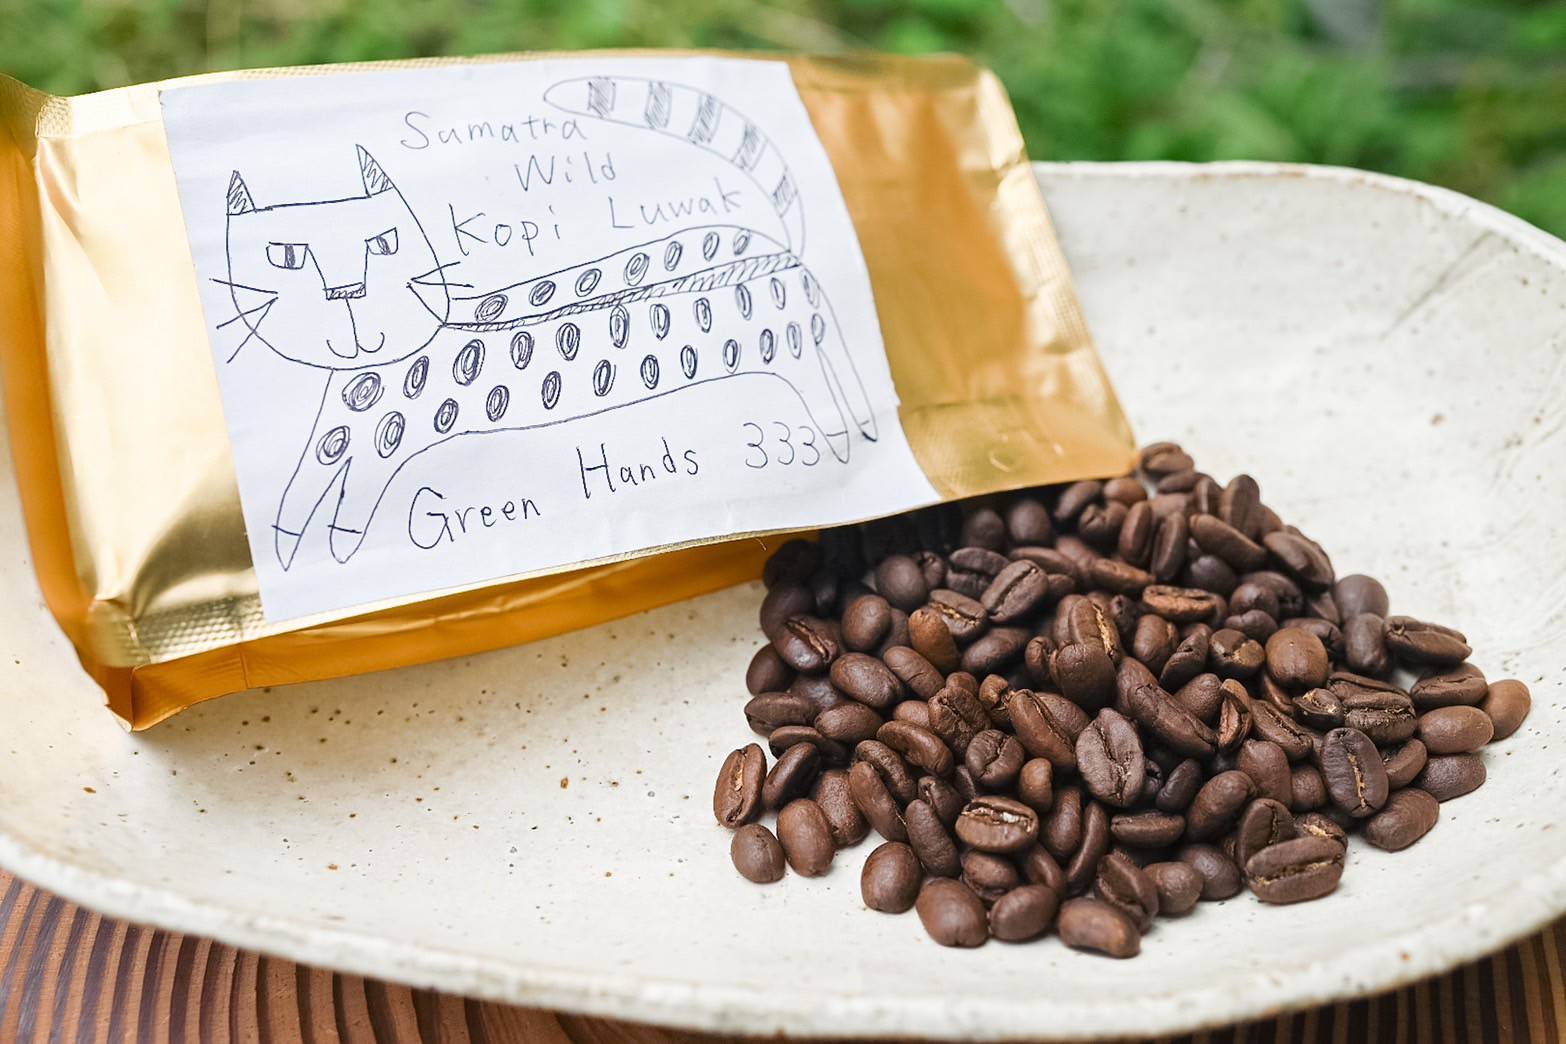 Sumatra
Wild
Kopi Luwak
Green Hands 333